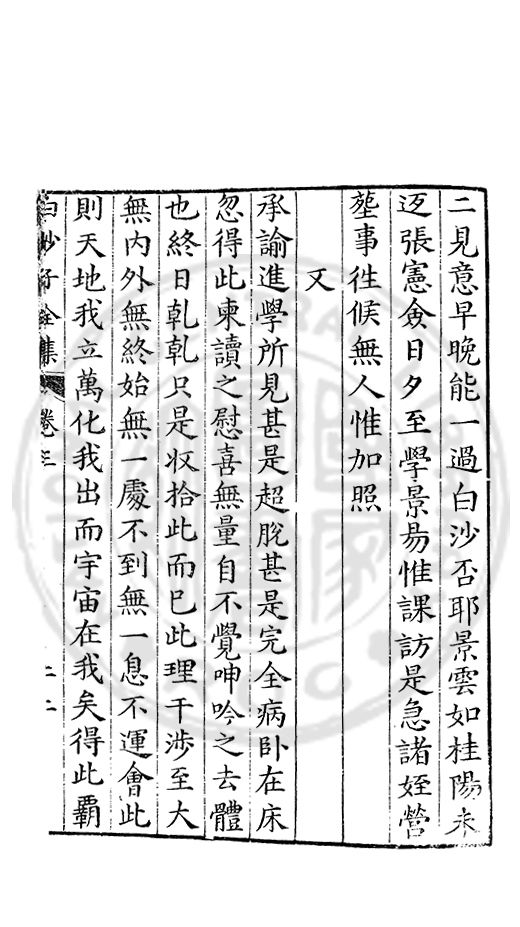 二見意早晚能一過白沙否耶景雲如桂陽未
迓張憲僉日夕至學景昜惟課訪是急諸姪營
塟事徃候無人惟加照
又
承諭進學所見甚是超脫甚是完全病卧在床
忽得此柬讀之慰喜無量自不覺呻吟之去體
也終日乹乹只是收拾此而已此理干涉至大
無內外無終始無一處不到無一息不運會此
則天地我立萬化我出而宇宙在我矣得此霸
白沙子全集 卷三